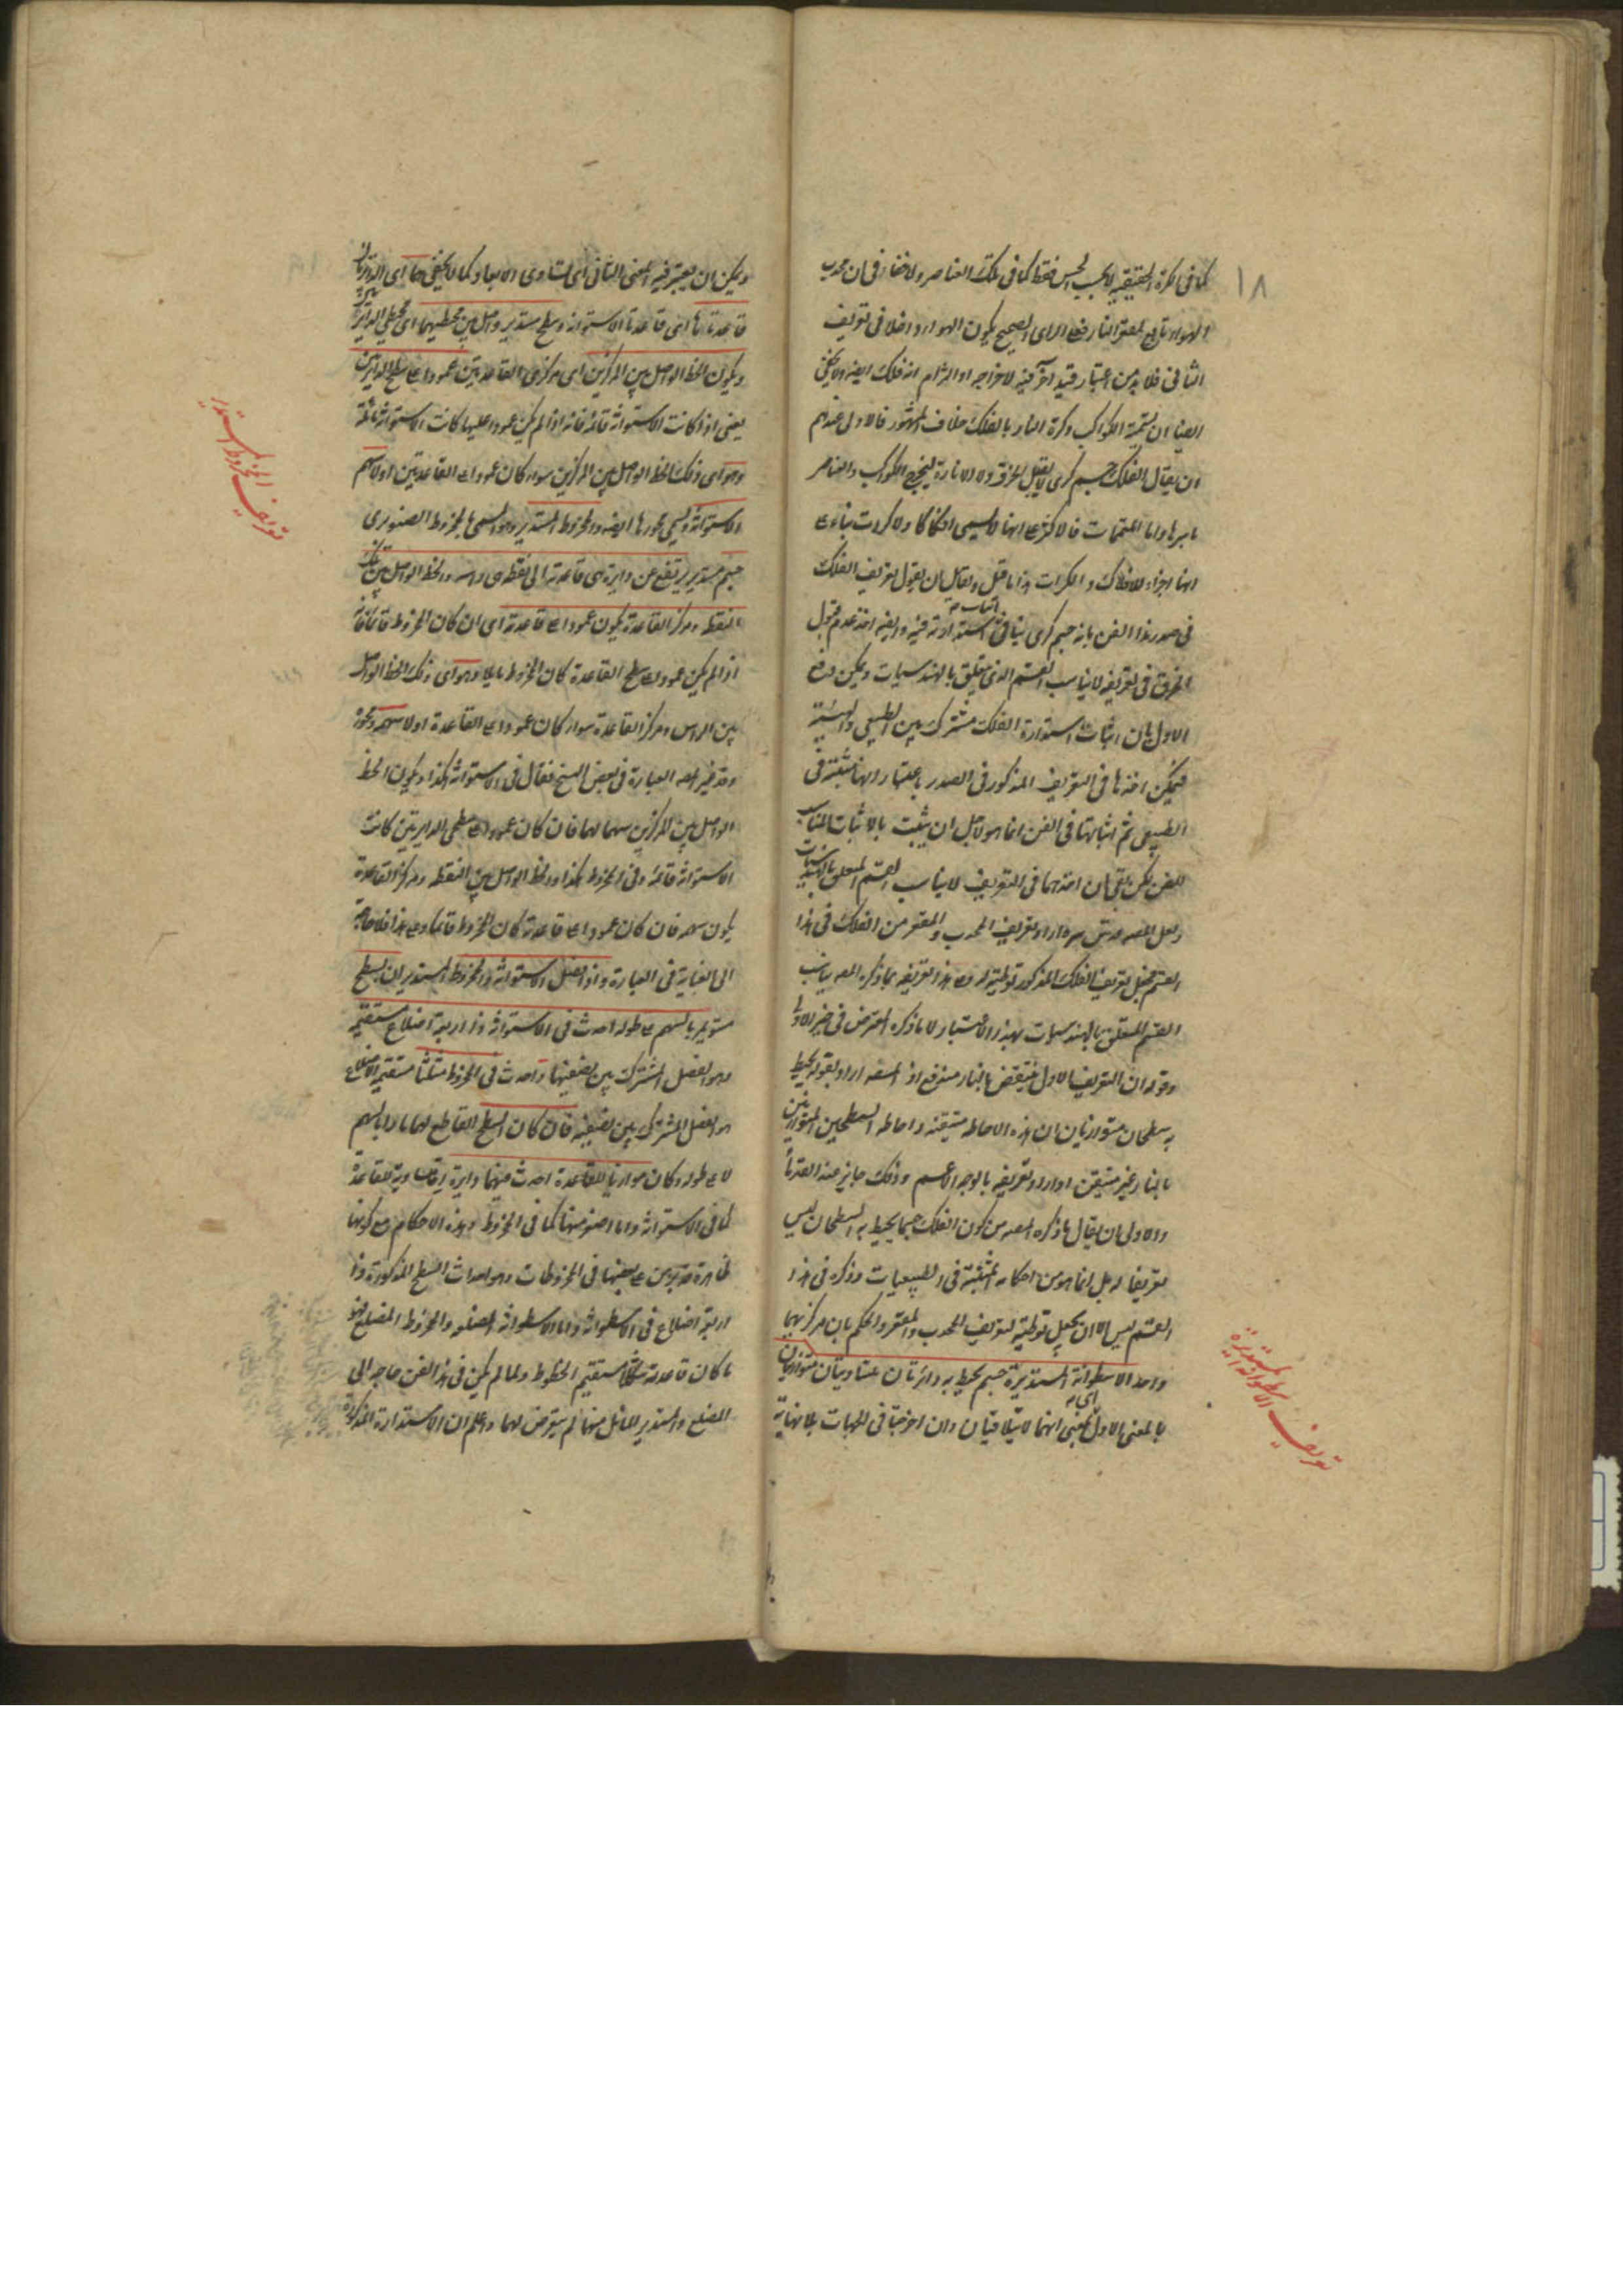 ١٨
كما فى الكرة الحقيقية لا بحسب الحس فقط كما فى تلك العناصر ولا خفاء فى ان محدب
الهواء تابع لمقعر النار فعلى الراى الصحيح يكون الهواء داخلا فى تعريف
الثانى فلا بد من اعتبار قيد آخر فيه لاخراجه او التزام انه فلك ايضا ولا يخفى
ايضا ان تسمية الكواكب وكرة النار بالفلك خلاف المشهور فالاولى عندهم
ان يقال الفلك جسم كرى لا يقبل الخرق ولا الانارة ليخرج الكواكب والعناصر
باسرها واما المتممات فالاكثر على انها لا يسمى افلاكا ولا كرات بناء على
انها اجزاء للافلاك والكرات هذا ما قيل ولقائل ان يقول تعريف الفلك
فى صدر هذا الفن بانه جسم كرى ينافى اثبات استدارته فيه وايضا اخذ عدم قبول
الخرق فى تعريفه لا يناسب القسم الذى يتعلق بالهندسيات ويمكن دفع
الاول بان اثبات استدارة الفلك مشترك بين الطبيعى والهيئة
فيمكن اخذها فى التعريف المذكور فى الصدر باعتبار انها مثبتة فى
الطبيعى ثم اثباتها فى الفن انما هو لاجل ان يثبت بالاثبات المناسب
للفن لكن بقى ان اخذهما فى التعريف لا يناسب القسم المتعلق بالهندسيات
ولعل المصه قدس سره اراد تعريف المحدب والمقعر من الفلك فى هذا
القسم فجعل تعريف الفلك المذكور توطئة له وعلى هذا تعريفه بما ذكره المصه يناسب
القسم المتعلق بالهندسيات بهذا الاعتبار لا ما ذكره المعترض فى حيز الاولى
وقوله ان التعريف الاول منتقض بالنار مندفع اذ المصه اراد بقوله يحيط
به سطحان متوازيان ان هذه الاحاطة متيقنة واحاطة السطحين المتوازيين
بالنار غير متيقن او اراد تعريفه بالوجه الاعم وذلك جايز عند القدماء
والاولى ان يقال ما ذكره المصه من كون الفلك جسما يحيط به السطحان ليس
تعريفا له بل انما هو من احكامه المثبتة فى الطبيعيات وذكره فى هذا
القسم ليس الا ان يجعل توطئة لتعريف المحدب والمقعر والحكم بان مركزيهما
واحد الاسطوانة المستديرة جسم يحيط به دائرتان متساويتان متوازيتان
بالمعنى الاول يعنى انهما لا يتلاقيان وان اخرجتا فى الجهات بلا نهاية
تعريف الاسطوانة المستديرة
ويمكن ان يعتبر فيه المعنى الثانى اى تساوى الابعاد كما لا يخفى هما اى الدائرتان
قاعدتاها اى قاعدتا الاسطوانة وسطح مستدير واصل بين محيطيهما اى محيطى الدائرتين
ويكون الخط الواصل بين المركزين اى مركزى القاعدتين عمودا على سطح الدائرتين
يعنى اذا كانت الاسطوانة قائمة فانه اذا لم يكن عمودا عليها كانت الاسطوانة مائلة
وهو اى ذلك الخط الواصل بين المركزين سواء كان عمودا على القاعدتين او لا سهم
الاسطوانة ويسمى محورها ايضا والمخروط المستدير وهو المسمى بالمخروط الصنوبرى
جسم مستدير يرتفع عن دايرة هى قاعدته الى نقطة هى راسه والخط الواصل بين تلك
النقطة ومركز القاعدة يكون عمودا على قاعدته اى ان كان المخروط قائما فانه
اذا لم يكن عمودا على سطح القاعدة كان المخروط مايلا وهو اى ذلك الخط الواصل
بين الراس ومركز القاعدة سواء كان عمودا على القاعدة او لا سهمه ومحوره
وقد غير المصه العبارة فى بعض النسخ فقال فى الاسطوانة هكذا ويكون الخط
الواصل بين المركزين سهما لها فان كان عمودا على سطحى الدايرتين كانت
الاسطوانة قائمة وفى المخروط هكذا والخط الواصل بين النقطة ومركز القاعدة
يكون سهمه فان كان عمودا على قاعدته كان المخروط قائما وعلى هذا فلا حاجة
الى العناية فى العبارة واذا فصل الاسطوانة والمخروط المستديران بسطح
مستو يمر بالسهم على طوله احدث فى الاسطوانة ذا اربعة اضلاع مستقيمة
وهو الفصل المشترك بين نصفيها واحدث فى المخروط مثلثا مستقيم الاضلاع
هو الفصل المشترك بين نصفيه فان كان السطح القاطع لهما مارا بالسهم
لا على طوله وكان موازيا للقاعدة احدث فيهما دايرة اما مساوية للقاعدة
كما فى الاسطوانة واما اصغر منها كما فى المخروط وهذه الاحكام مع كونها
ظاهرة قد برهن على بعضها فى المخروطات وهو احداث السطح المذكورة ذا
اربعة اضلاع فى الاسطوانة واما الاسطوانة المضلعة والمخروط المضلع فهو
ما كان قاعدته شكلا مستقيم الخطوط ولما لم يكن فى هذا الفن حاجة الى
المضلع والمستدير المائل منهما لم يتعرض لهما واعلم ان الاستدارة المذكورة
تعريف المخروط المستدير